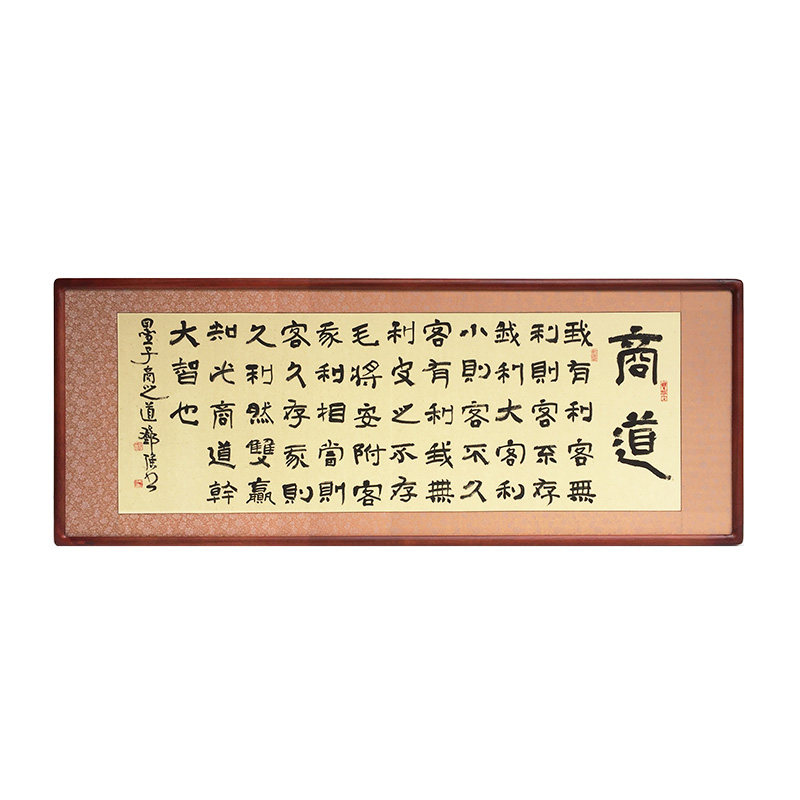 商道
我有利客無
利則客不存
我利大客利
小則客不久
客有利我無
利皮之不存
毛將安附客
我利相當則
客久存我則
久利然雙贏
知此商道幹
大智也
墨子商之道